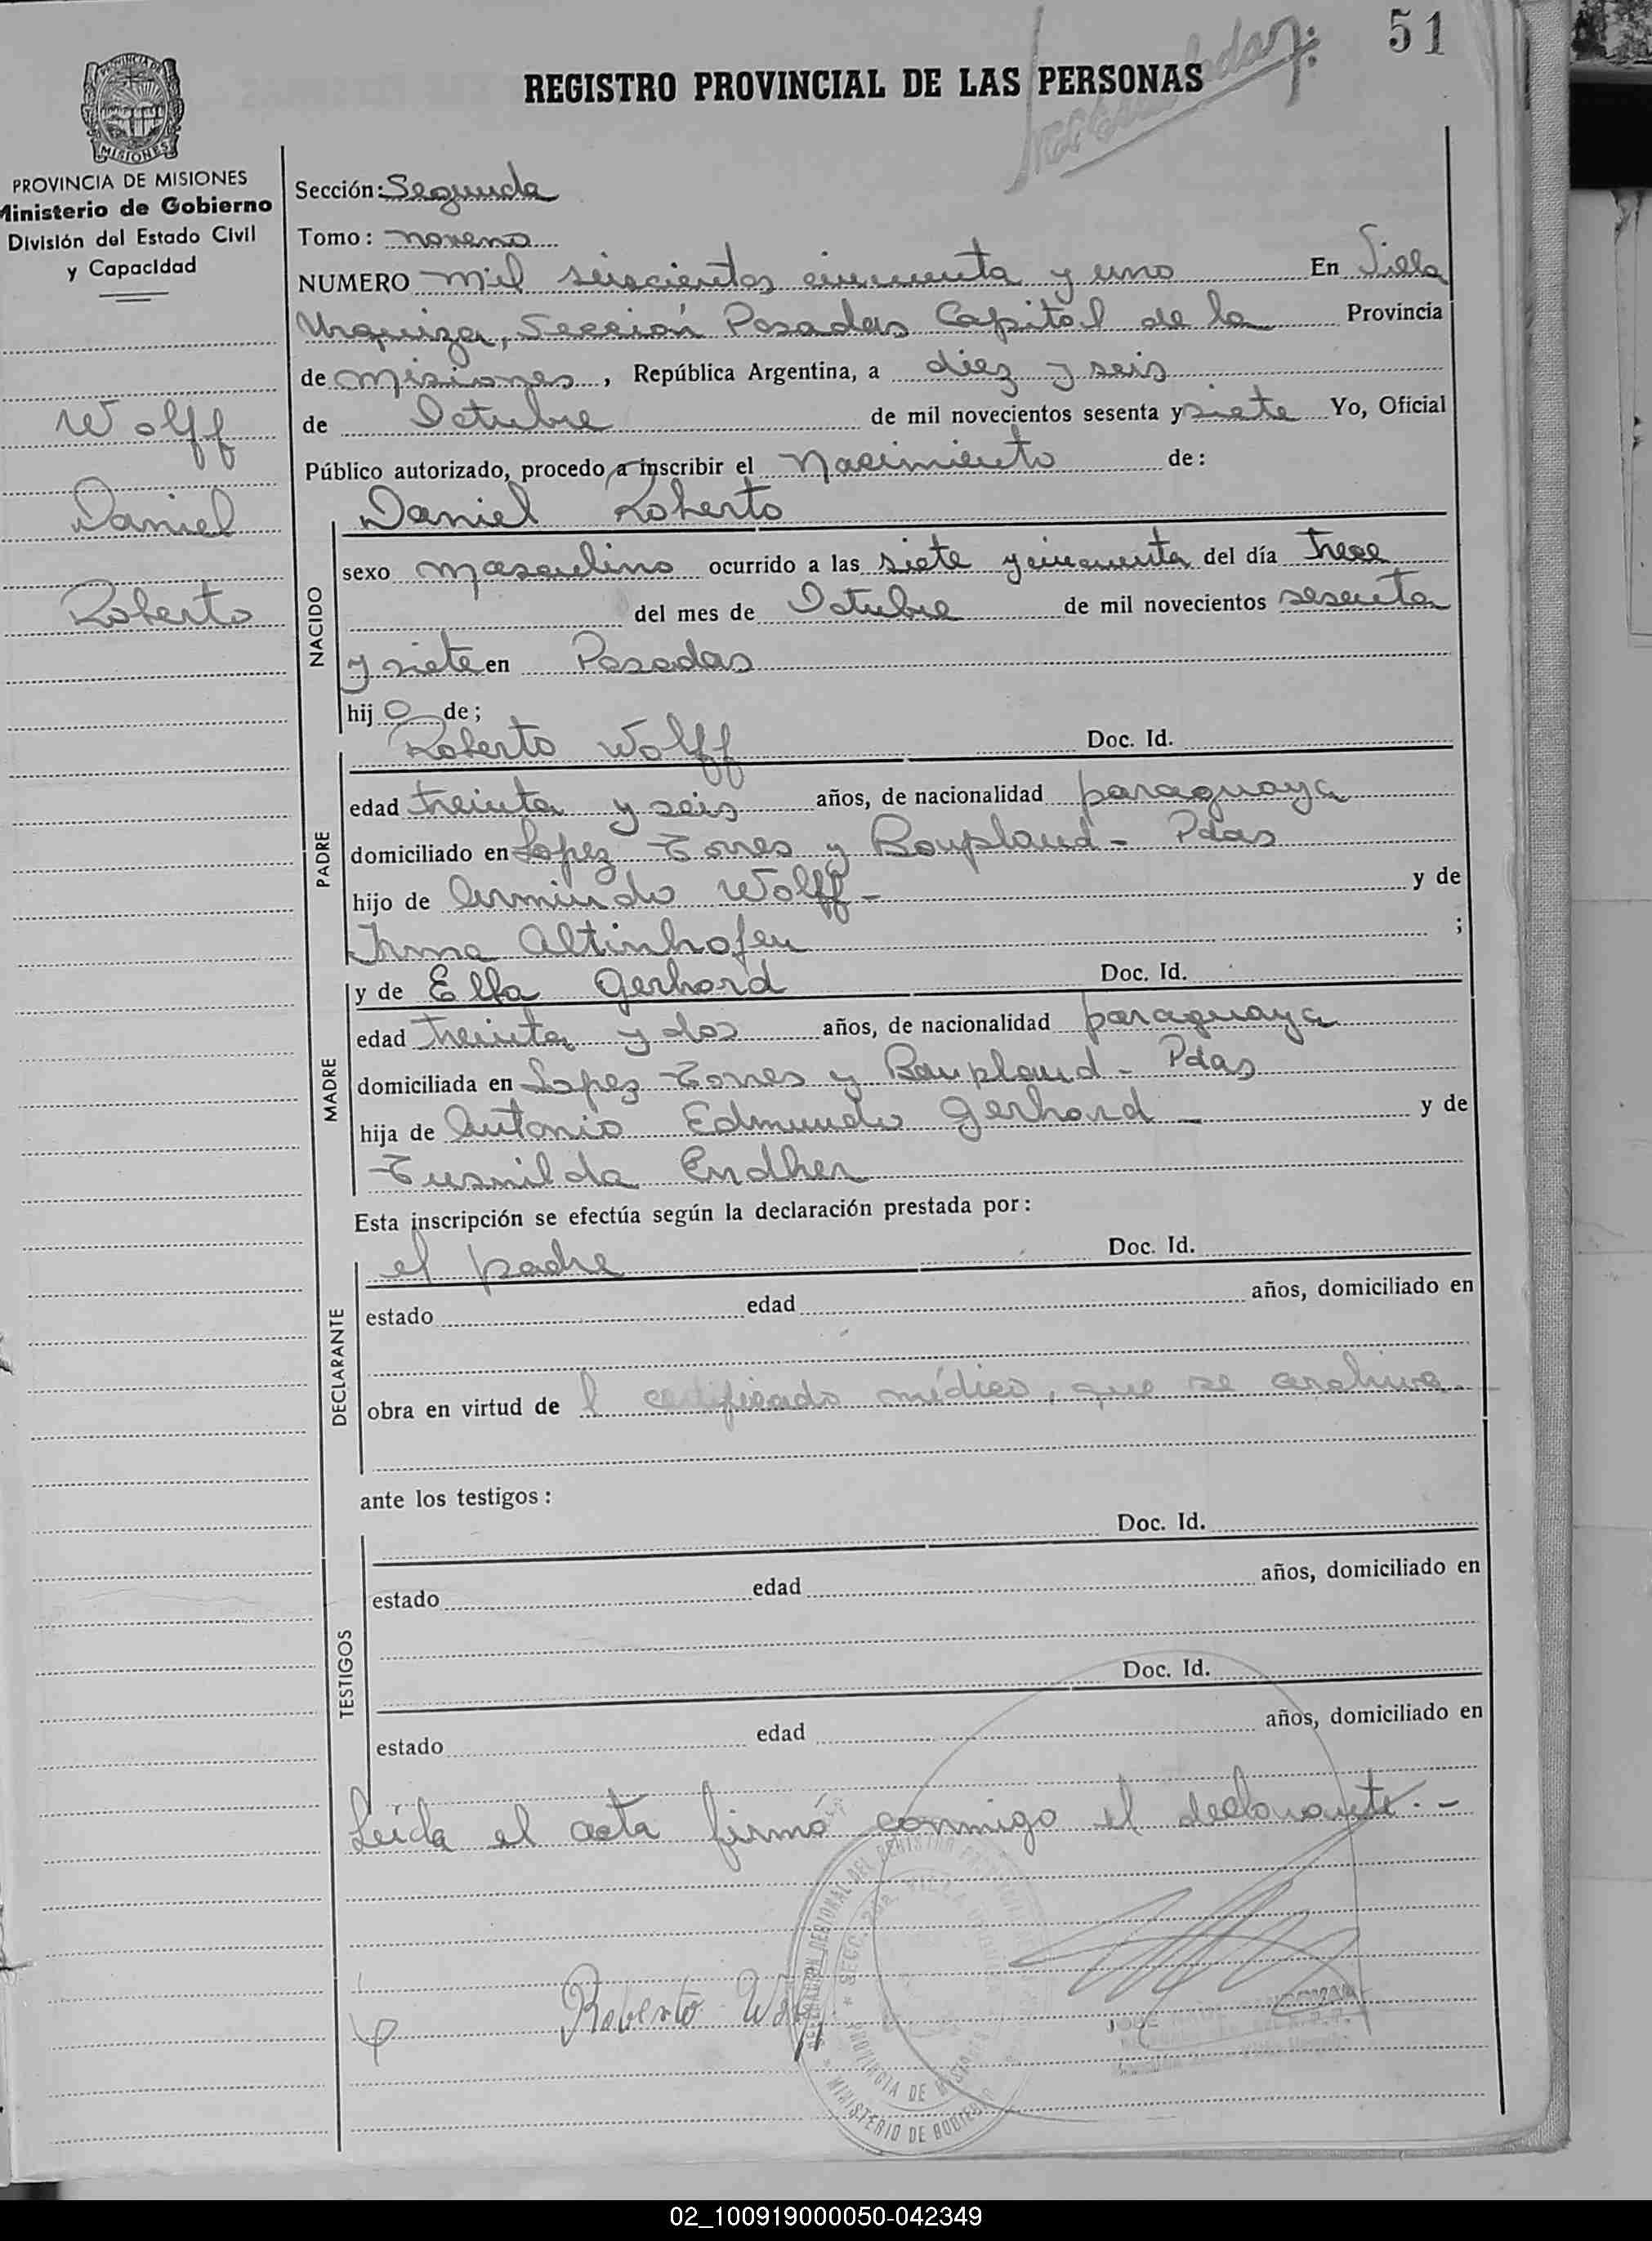 51
REGISTRO PROVINCIAL DE LAS PERSONAS
PROVINCIA DE
MISIONES
PROVINCIA DE MISIONES
Ministerio de Gobierno
División del Estado Civil
y Capacidad
Wolff
Daniel
Roberto
Sección: Segunda
Tomo: noveno
NUMERO mil seiscientos cincuenta y uno En Villa
Urquiza, Sección Posadas Capital de la Provincia
de misiones, República Argentina, a diez y seis
de Octubre de mil novecientos sesenta y siete Yo, Oficial
Público autorizado, procedo a inscribir el nacimiento de:
Daniel Roberto
NACIDO
sexo masculino ocurrido a las siete y cincuenta del día trece
del mes de Octubre de mil novecientos sesenta
y siete en Posadas
hijo de;
PADRE
Roberto Wolff Doc. Id.
edad treinta y seis años, de nacionalidad paraguaya
domiciliado en Lopez Torres y Bonpland - Pdas
hijo de Armindo Wolff - y de
Irma Altinhofen ;
MADRE
y de Ella Gerhard Doc. Id.
edad treinta y dos años, de nacionalidad paraguaya
domiciliada en Lopez Torres y Bonpland - Pdas
hija de Antonio Edmundo Gerhard y de
Tusnilda Endher
Esta inscripción se efectúa según la declaración prestada por:
DECLARANTE
el padre Doc. Id.
estado edad años, domiciliado en
obra en virtud de l certificado médico, que se archiva.
ante los testigos:
TESTIGOS
Doc. Id.
estado edad años, domiciliado en
Doc. Id.
estado edad años, domiciliado en
Leída el acta firmó conmigo el declarante.-
Roberto Wolff
DELEGACION REGIONAL DEL REGISTRO
SECC. 2da. VILLA URQUIZA
PROVINCIA DE MISIONES
MINISTERIO DE GOBIERNO
JOSE
02_100919000050-042349